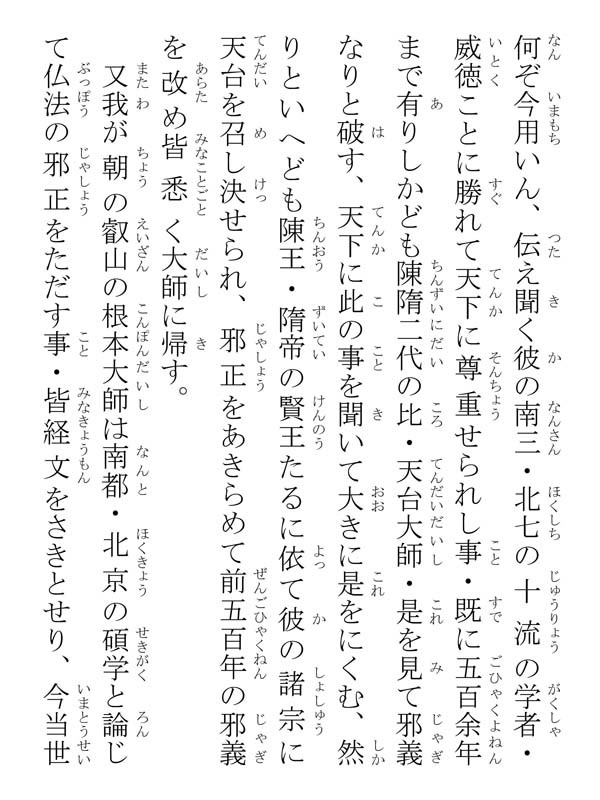 何ぞ今用いん、伝え聞く彼の南三・北七の十流の学者・
威徳ことに勝れて天下に尊重せられし事・既に五百余年
まで有りしかども陳隋二代の比・天台大師・是を見て邪義
なりと破す、天下に此の事を聞いて大きに是をにくむ、然
りといへども陳王・隋帝の賢王たるに依て彼の諸宗に
天台を召し決せられ、邪正をあきらめて前五百年の邪義
を改め皆悉く大師に帰す。
又我が朝の叡山の根本大師は南都・北京の碩学と論じ
て仏法の邪正をただす事・皆経文をさきとせり、今当世